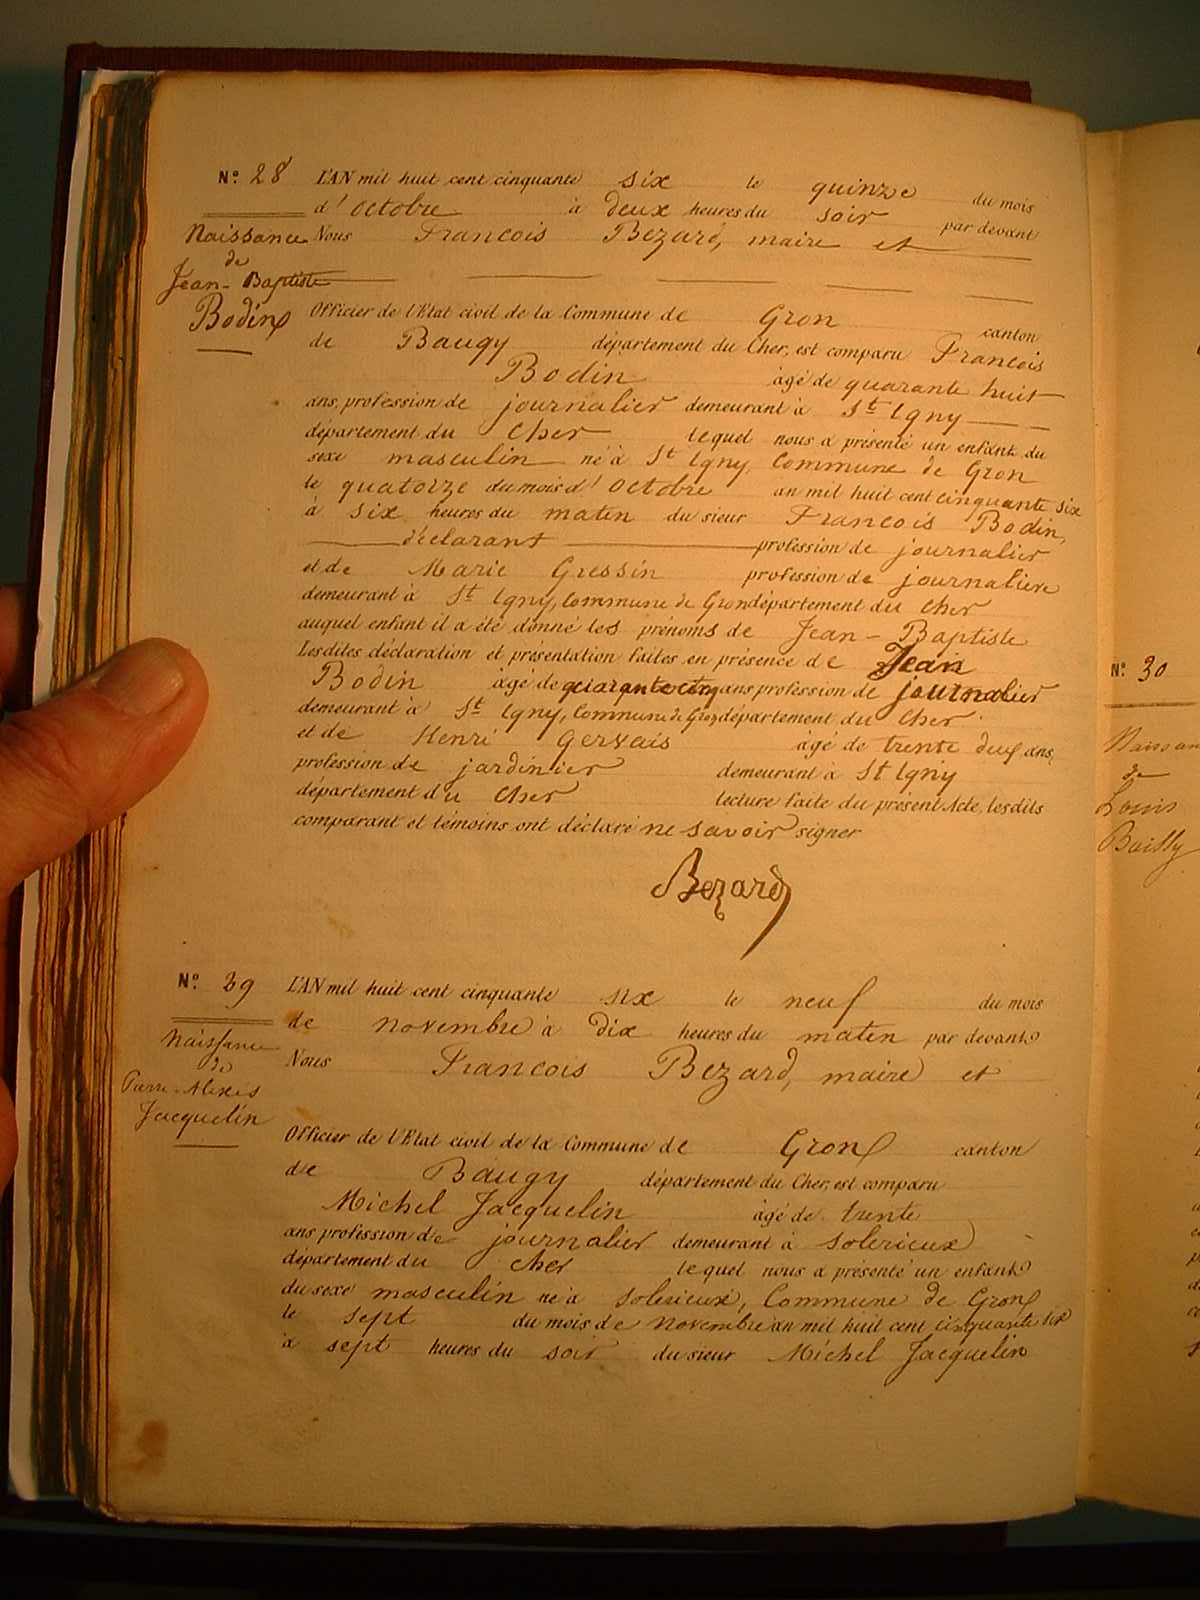 N.º 28 L'AN mil huit cent cinquante six le quinze du mois
d'octobre à deux heures du soir par devant
Naissance Nous Francois Bezard, maire et
de
Jean-Baptiste
Bodin Officier de l'Etat civil de la Commune de Gron canton
de Baugy département du Cher, est comparu Francois
Bodin âgé de quarante huit
ans, profession de journalier demeurant à St Igny
département du Cher lequel nous a présenté un enfant du
sexe masculin né à St Igny, Commune de Gron
le quatorze du mois d'octobre an mil huit cent cinquante six
à six heures du matin du sieur Francois Bodin,
déclarant profession de journalier
et de Marie Gressin profession de journaliere
demeurant à St Igny, Commune de Gron département du Cher
auquel enfant il a été donné les prénoms de Jean-Baptiste
Lesdites déclaration et présentation faites en présence de Jean
Bodin âgé de quarante cinq ans profession de journalier
demeurant à St Igny, Commune de Gron département du Cher
et de Henri Gervais âgé de trente deux ans,
profession de jardinier demeurant à St Igny
département du Cher lecture faite du présent Acte, lesdits
comparant et témoins ont déclaré ne savoir signer
Bezard
N.º 29 L'AN mil huit cent cinquante six le neuf du mois
de novembre à dix heures du matin par devant
Naissance
de
Pierre-Alexis
Jacquelin
Nous Francois Bezard, maire et
Officier de l'Etat civil de la Commune de Gron canton
de Baugy département du Cher, est comparu
Michel Jacquelin âgé de trente
ans profession de journalier demeurant à Solerieux
département du Cher lequel nous a présenté un enfant
du sexe masculin né à Solerieux, Commune de Gron
le sept du mois de novembre an mil huit cent cinquante six
à sept heures du soir du sieur Michel Jacquelin
N.º 30
Naissan
de
Louis
Bailly